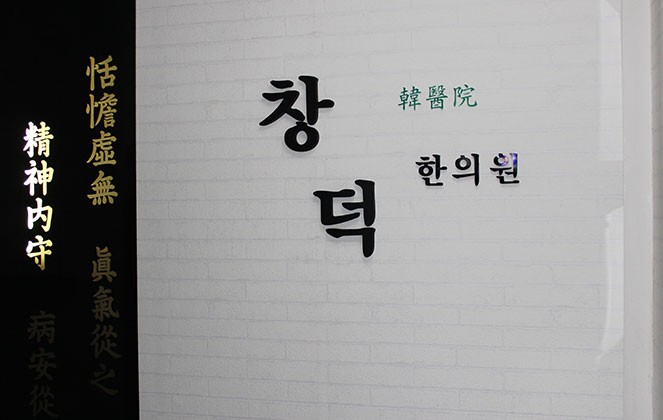 恬憺虛無 眞氣從之
精神内守 病安從
창덕
韓醫院
한의원